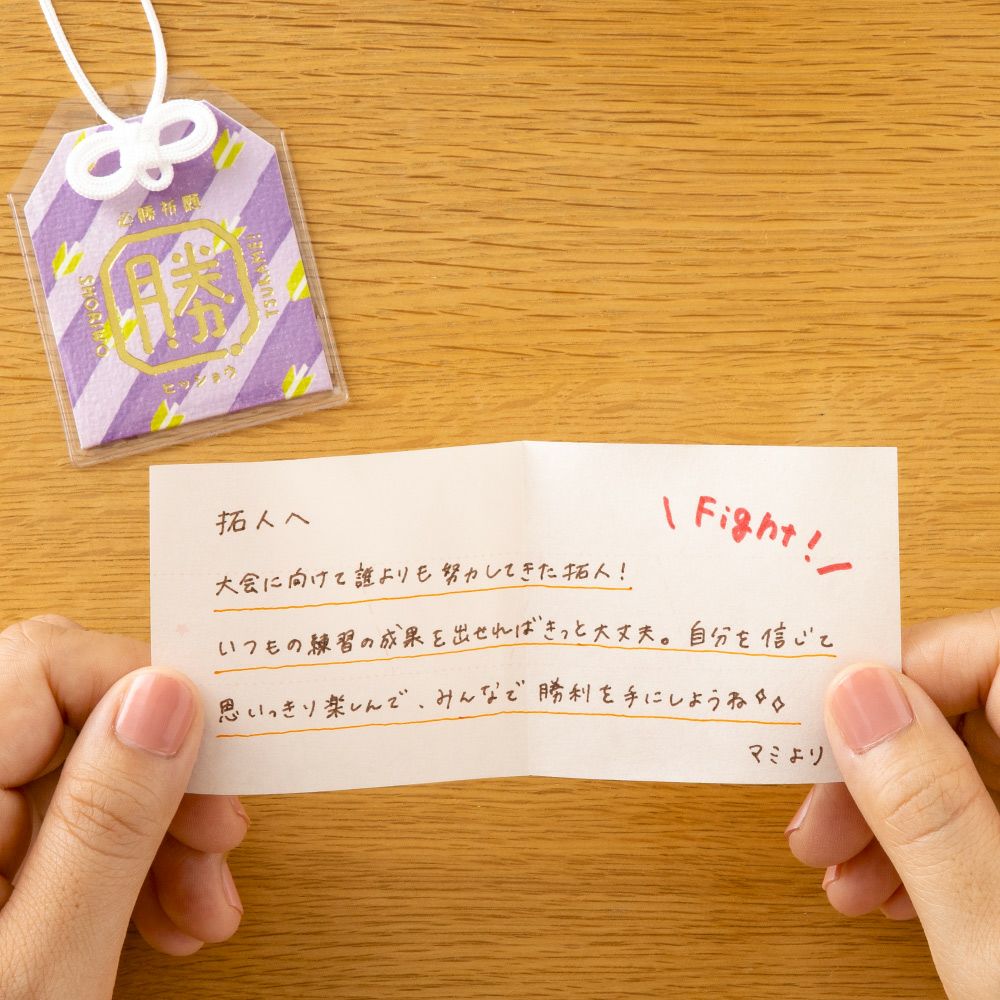 必勝祈願
勝
SHORI WO
TSUKAME!
ヒッショウ
拓人へ
\ Fight! /
大会に向けて誰よりも努力してきた拓人!
いつもの練習の成果を出せればきっと大丈夫。自分を信じて
思いっきり楽しんで、みんなで勝利を手にしようね✧✧
マミより